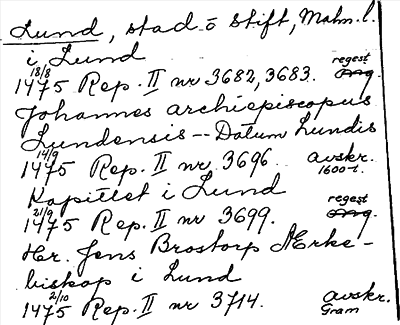 Lund, stad o stift, Malm. l.
i Lund
18/8 regest
1475 Rep. II nr 3682, 3683. orig.
Johannes archiepiscopus
Lundensis -- Datum Lundis
14/9
1475 Rep. II nr 3696 avskr. 1600-t.
Kapitlet i Lund
21/9 regest
1475 Rep. II nr 3699. orig.
Hr. Jens Brostorp Ærke-
biskop i Lund
2/10
1475 Rep. II nr 3714. avskr. Gram